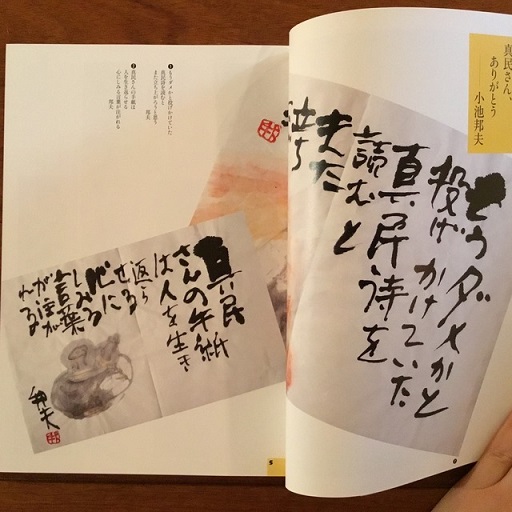 真民さん、
ありがとう
小池邦夫
もうダメかと
投げかけていた
真民詩を
読むと
また
❶もうダメかと投げかけていた
真民詩を読むと
邦夫
❷真民さんの手紙は
人を生き返らせる
心にしみる言葉が注がれる
邦夫
真民
さんの手紙
は人を生き
返ら
せる
心に
しみる
言葉
が注が
れる
邦夫